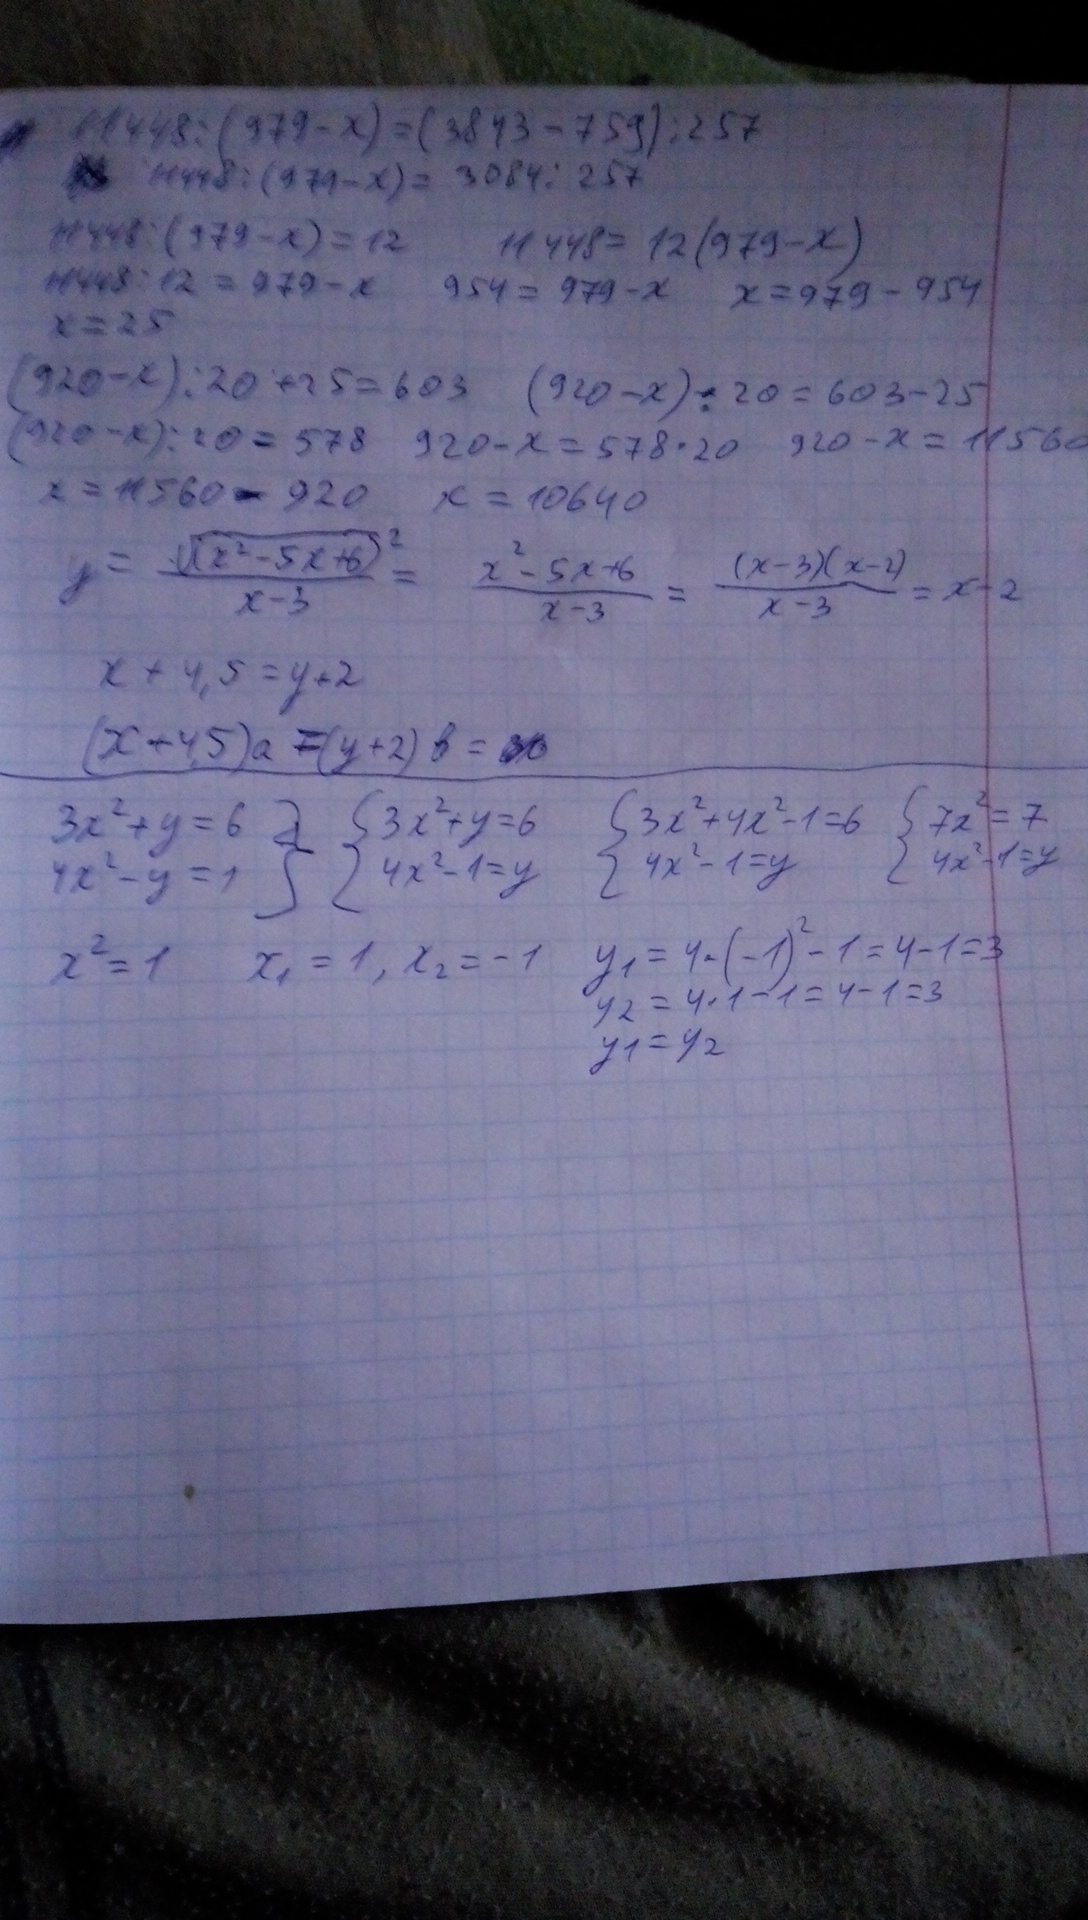 11448:(979-x)=(3843-759):257
11448:(979-x)= 3084:257
11448:(979-x)=12 11448= 12(979-x)
11448:12=979-x 954=979-x x=979-954
x=25
(920-x):20+25=603 (920-x):20=603-25
(920-x):20=578 920-x=578·20 920-x=11560
x=11560-920 x=10640
y= √(x²-5x+6)² / x-3 = x²-5x+6 / x-3 = (x-3)(x-2) / x-3 = x-2
x+4,5=y+2
(x+4,5)a=(y+2)b=
3x²+y=6 } { 3x²+y=6 { 3x²+4x²-1=6 { 7x²=7
4x²-y=1 } { 4x²-1=y { 4x²-1=y { 4x²-1=y
x²=1 x₁=1, x₂=-1 y1=4·(-1)²-1=4-1=3
y2=4·1-1=4-1=3
y1=y2